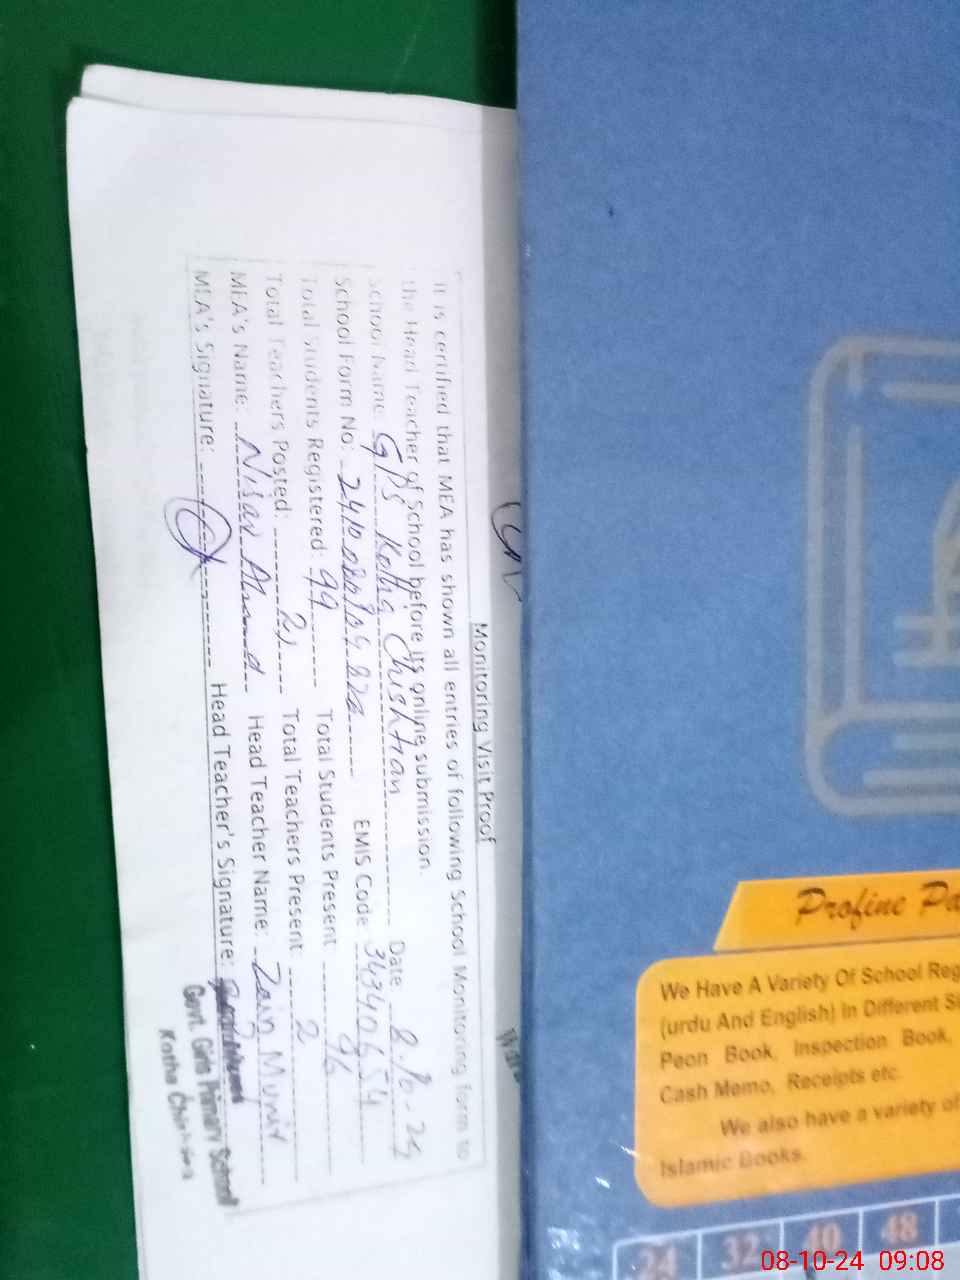 Monitoring Visit Proof
It is certified that MEA has shown all entries of following School Monitoring form to
the Head Teacher of School before its online submission.
School Name: GPS Kotha Chishtian Date: 8-10-24
School Form No: EMIS Code: 34340654
Total Students Registered: 99 Total Students Present 96
Total Teachers Posted: 2 Total Teachers Present: 2
MEA's Name: Nisar Ahmad Head Teacher Name: Zain Munir
MEA's Signature: Head Teacher's Signature:
Govt. Girls Primary School
Kotha
Profine Pa
We Have A Variety Of School Reg
(urdu And English) In Different Si
Peon Book, Inspection Book,
Cash Memo, Receipts etc.
We also have a variety of
Islamic Books.
24 32 40 48
08-10-24 09:08